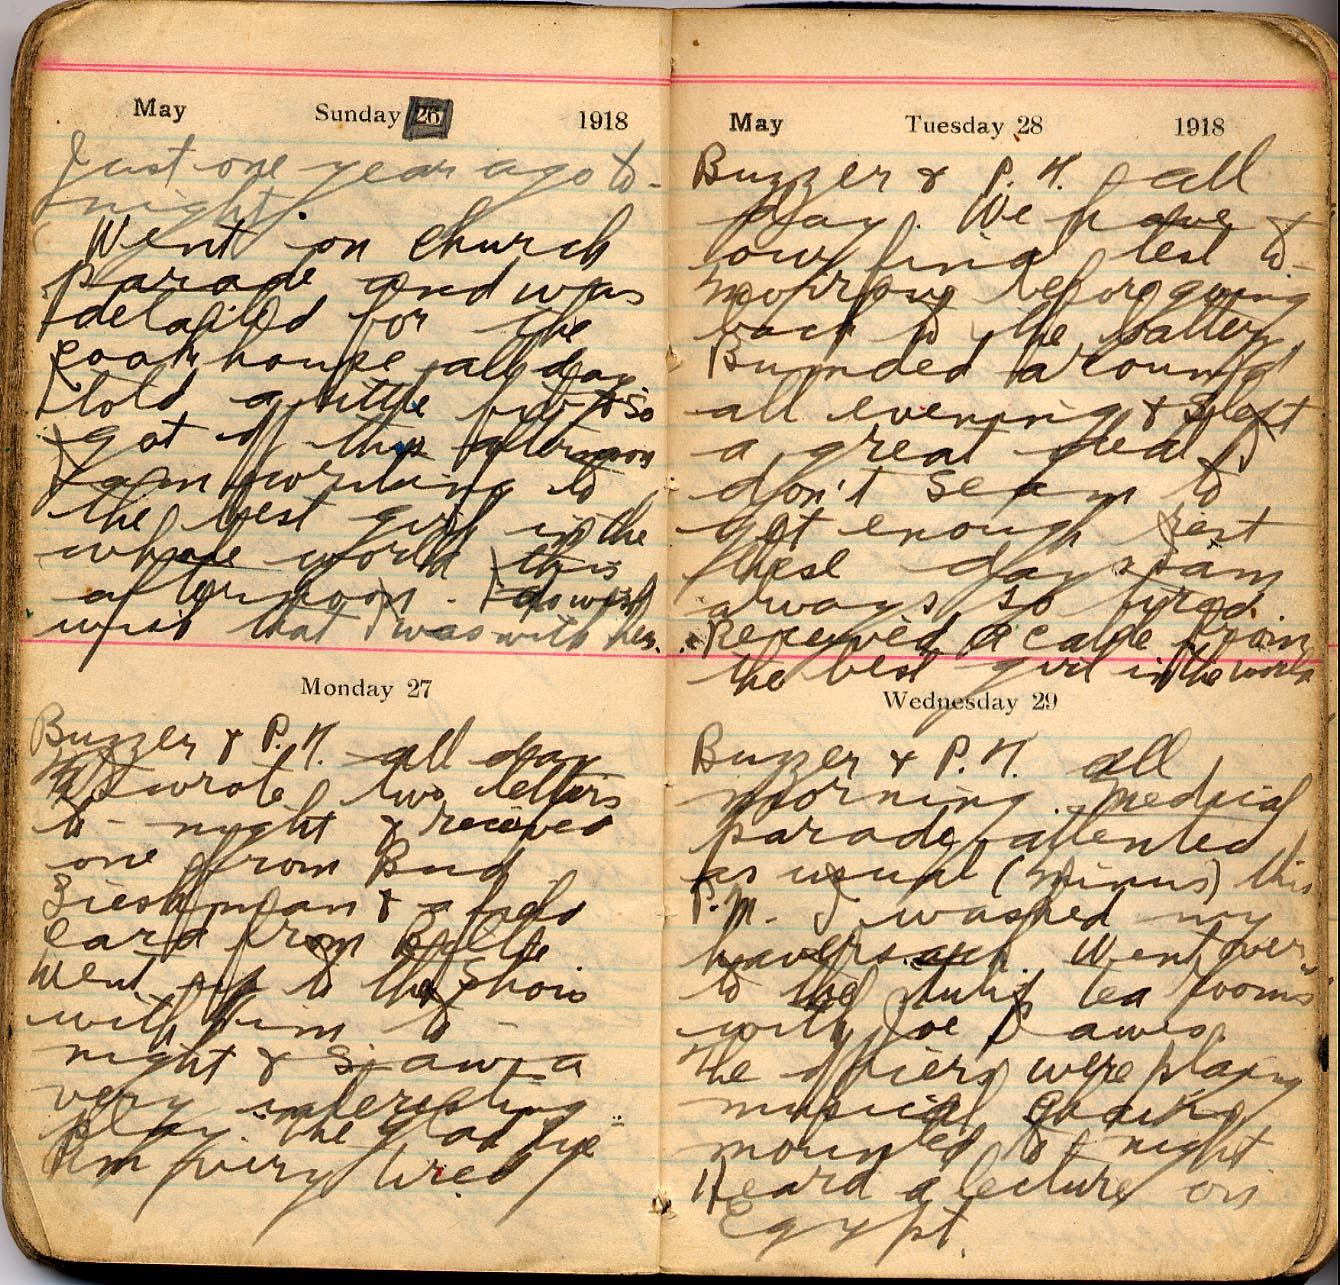 May Sunday 26 1918
Just one year ago to-
night.
Went on church
parade and was
detailed for the
cook house all day
told a little fib & so
got off this afternoon
I am writing to
the best girl in the
whole world this
afternoon. I do wish
wish that I was with her.
Monday 27
Buzzer & P.H. all day
wrote two letters
to-night & received
one from Bud
& a
card from Belle
Went up to the show
with him to-
night & saw a
very interesting
play. The Glad Eye
Am very tired
May Tuesday 28 1918
Buzzer & P.H. all
day. We have
our final test to-
morrow before going
back to the battery.
Bummed around
all evening & slept
a great deal I
don't seam to
get enough rest
these days am
always so tired.
Received a cable from
the best girl in the world
Wednesday 29
Buzzer & P.H. all
morning. Medical
parade attented
as usual (minus) this
P.M. I washed my
haversack. Went over
to the tea rooms
with Joe Lawes.
The officers were playing
musical chairs
mounted to night
Heard a lecture on
Egypt.